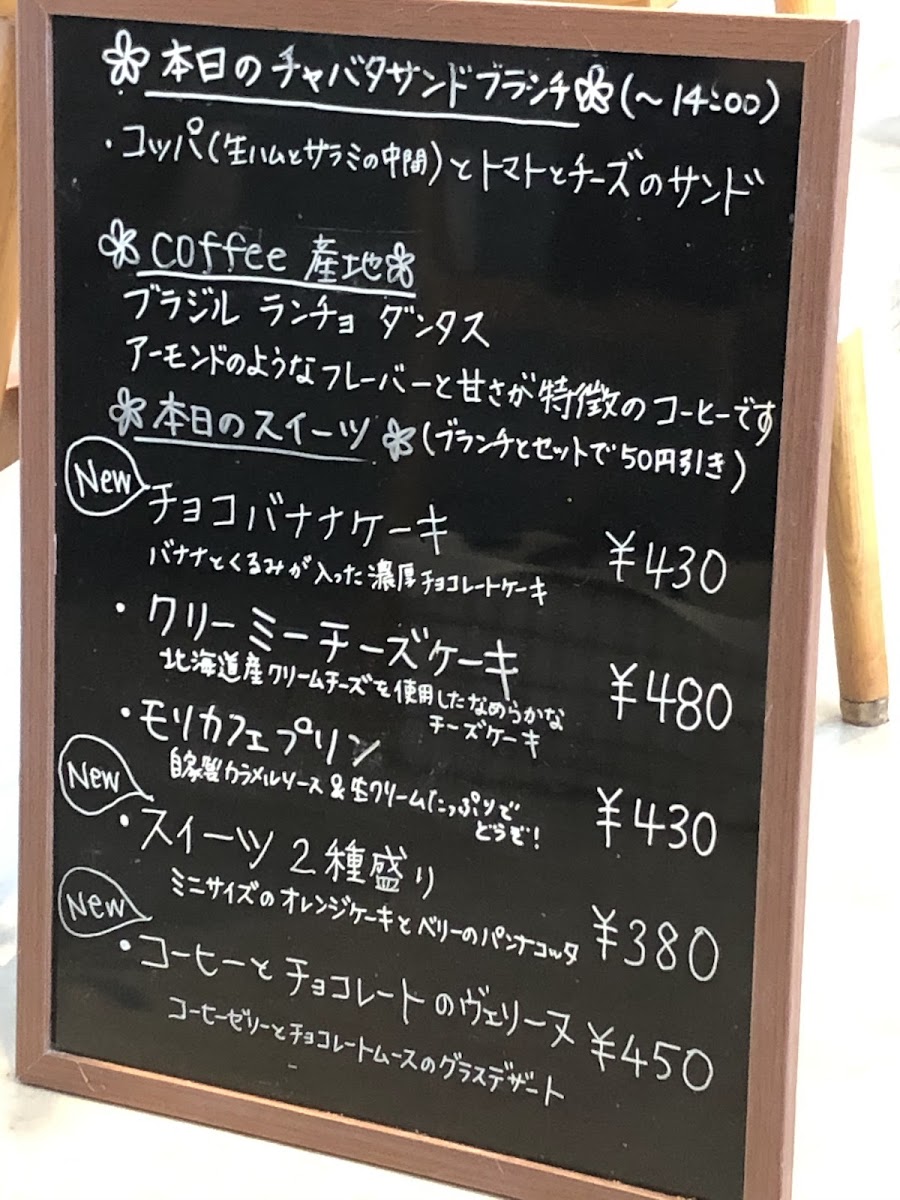 本日のチャバタサンドブランチ(～14:00)
・コッパ(生ハムとサラミの中間)とトマトとチーズのサンド
coffee 産地
ブラジル ランチョ ダンタス
アーモンドのようなフレーバーと甘さが特徴のコーヒーです
本日のスイーツ (ブランチとセットで50円引き)
New
チョコバナナケーキ ¥430
バナナとくるみが入った濃厚チョコレートケーキ
・クリーミーチーズケーキ ¥480
北海道産クリームチーズを使用したなめらかな
チーズケーキ
・モリカフェプリン ¥430
自家製カラメルソース&生クリームたっぷりで
どうぞ!
New
・スイーツ2種盛り ¥380
ミニサイズのオレンジケーキとベリーのパンナコッタ
New
・コーヒーとチョコレートのヴェリーヌ ¥450
コーヒーゼリーとチョコレートムースのグラスデザート